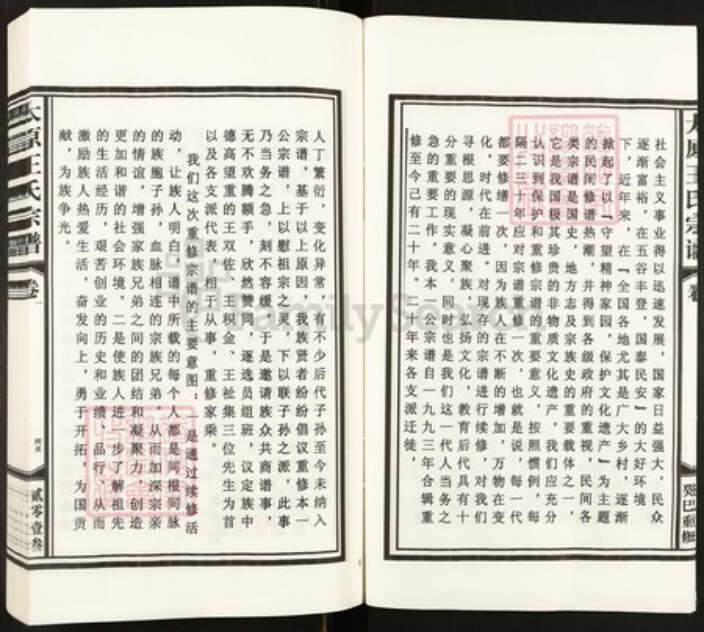 社会主义事业得以迅速发展，国家日益强大，民众
逐渐富裕。在五谷丰登，国泰民安”的大好环境
下，近年来，在『全国各地尤其是广大乡村，逐渐
掀起了以『守望精神家园，保护文化遗产』为主题
的民间修谱热潮，并得到各级政府的重视。民间各
类宗谱是国史，地方志及宗族史的重要载体之一，
它是我国极其珍贵的非物质文化遗产。我们应充分
认识到保护和重修宗谱的重要意义，按照惯例，每
隔二三十年应对宗谱重修一次，也就是说，每一代
都要修缮一次，因为族人在不断的增加，万物在变
化，时代在前进。对现存的宗谱进行续修，对我们
寻根思源，凝心聚族，弘扬文化，教育后代具有十
分重要的现实意义，同时也是我们这一代人当务之
急的重要工作。我本一公宗谱自一九九三年合辑重
修至今己有二十年。二十年来各支派迁徙，
人丁繁衍，变化异常，有不少后代子孙至今未纳入
宗谱，基于以上原因，我族贤者纷纷倡议重修本一
公宗谱，上以慰祖宗之灵，下以联子孙之派，此事
乃当务之急，刻不容缓，于是邀请族众共商谱事，
无不欢腾额手，欣然赞同，遂选员组班，议定族中
德高望重的王双佐、王积金、王祉集三位先生为首
以及各支派代表，相于从事，重修家乘。
我们这次重修宗谱的主要意图：一是通过续修活
动，让族人明白，谱中所载的每个人都是同根同脉
的族胞子孙，血脉相连的宗族兄弟，从而加深宗亲
的情谊，增强家族兄弟之间的团结和凝聚力，创造
更加和谐的社会环境。二是使族人进一步了解祖先
的生活经历，艰苦创业的历史和业绩、品行、从而
激励族人热爱生活，奋发向上，勇于开拓，为国贡
献，为族争光。
太原王氏宗谱
卷一
贰零壹叁
太原王氏宗谱
癸巳重修
FamilySearch